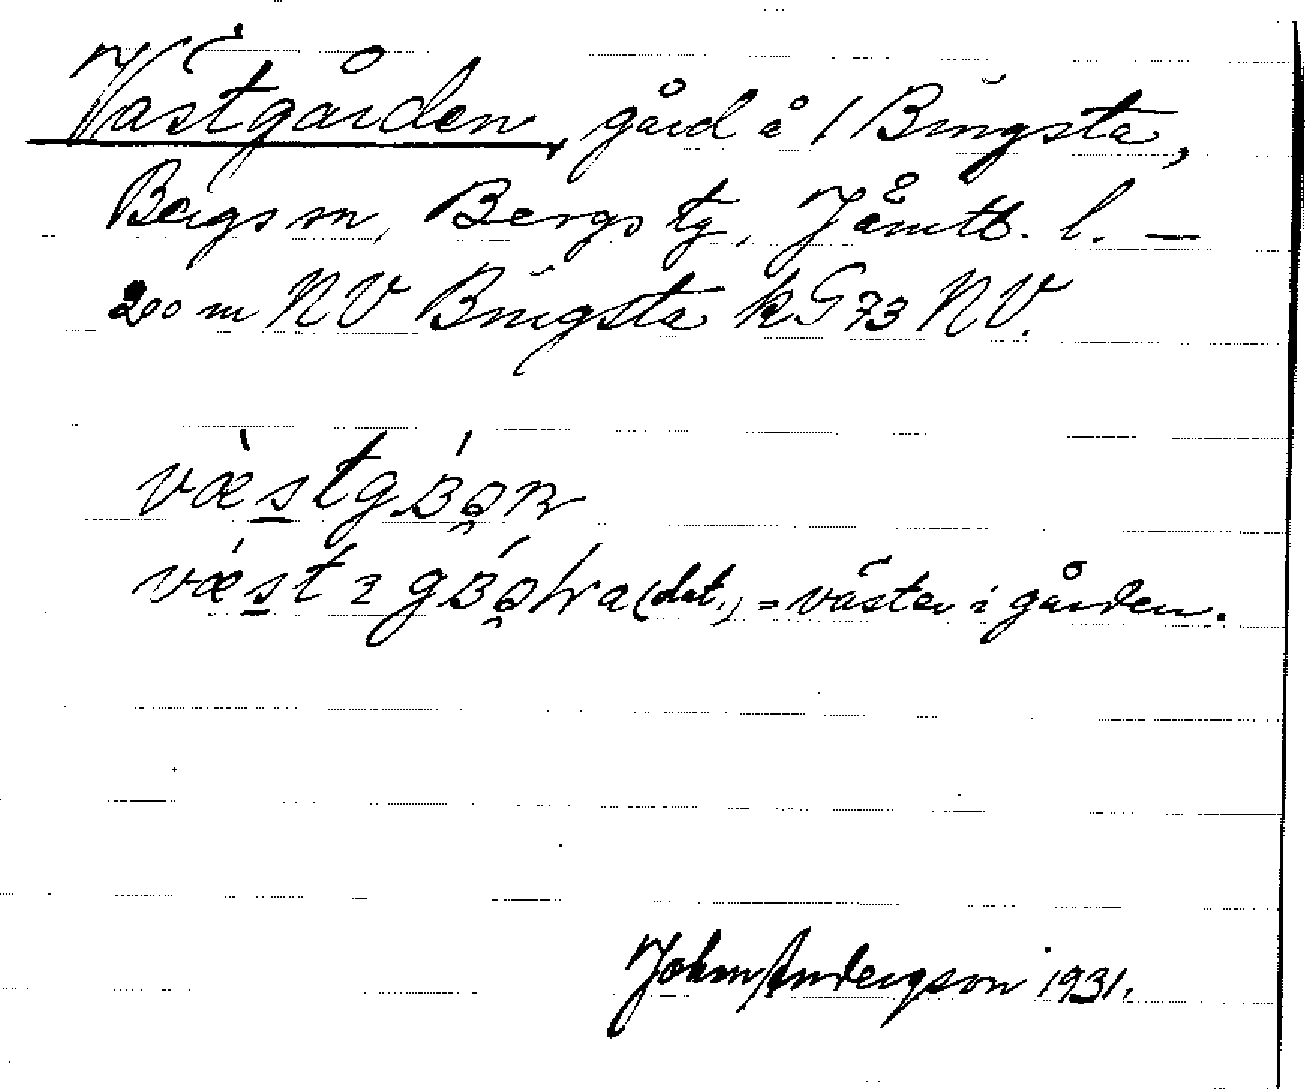 Västgården, gård å 1 Bingsta,
Bergs sn, Bergs tg, Jämtl. l. —
200 m NV Bingsta kG73 NV.
(dat.) = väster i gården.
John Andersson 1931.